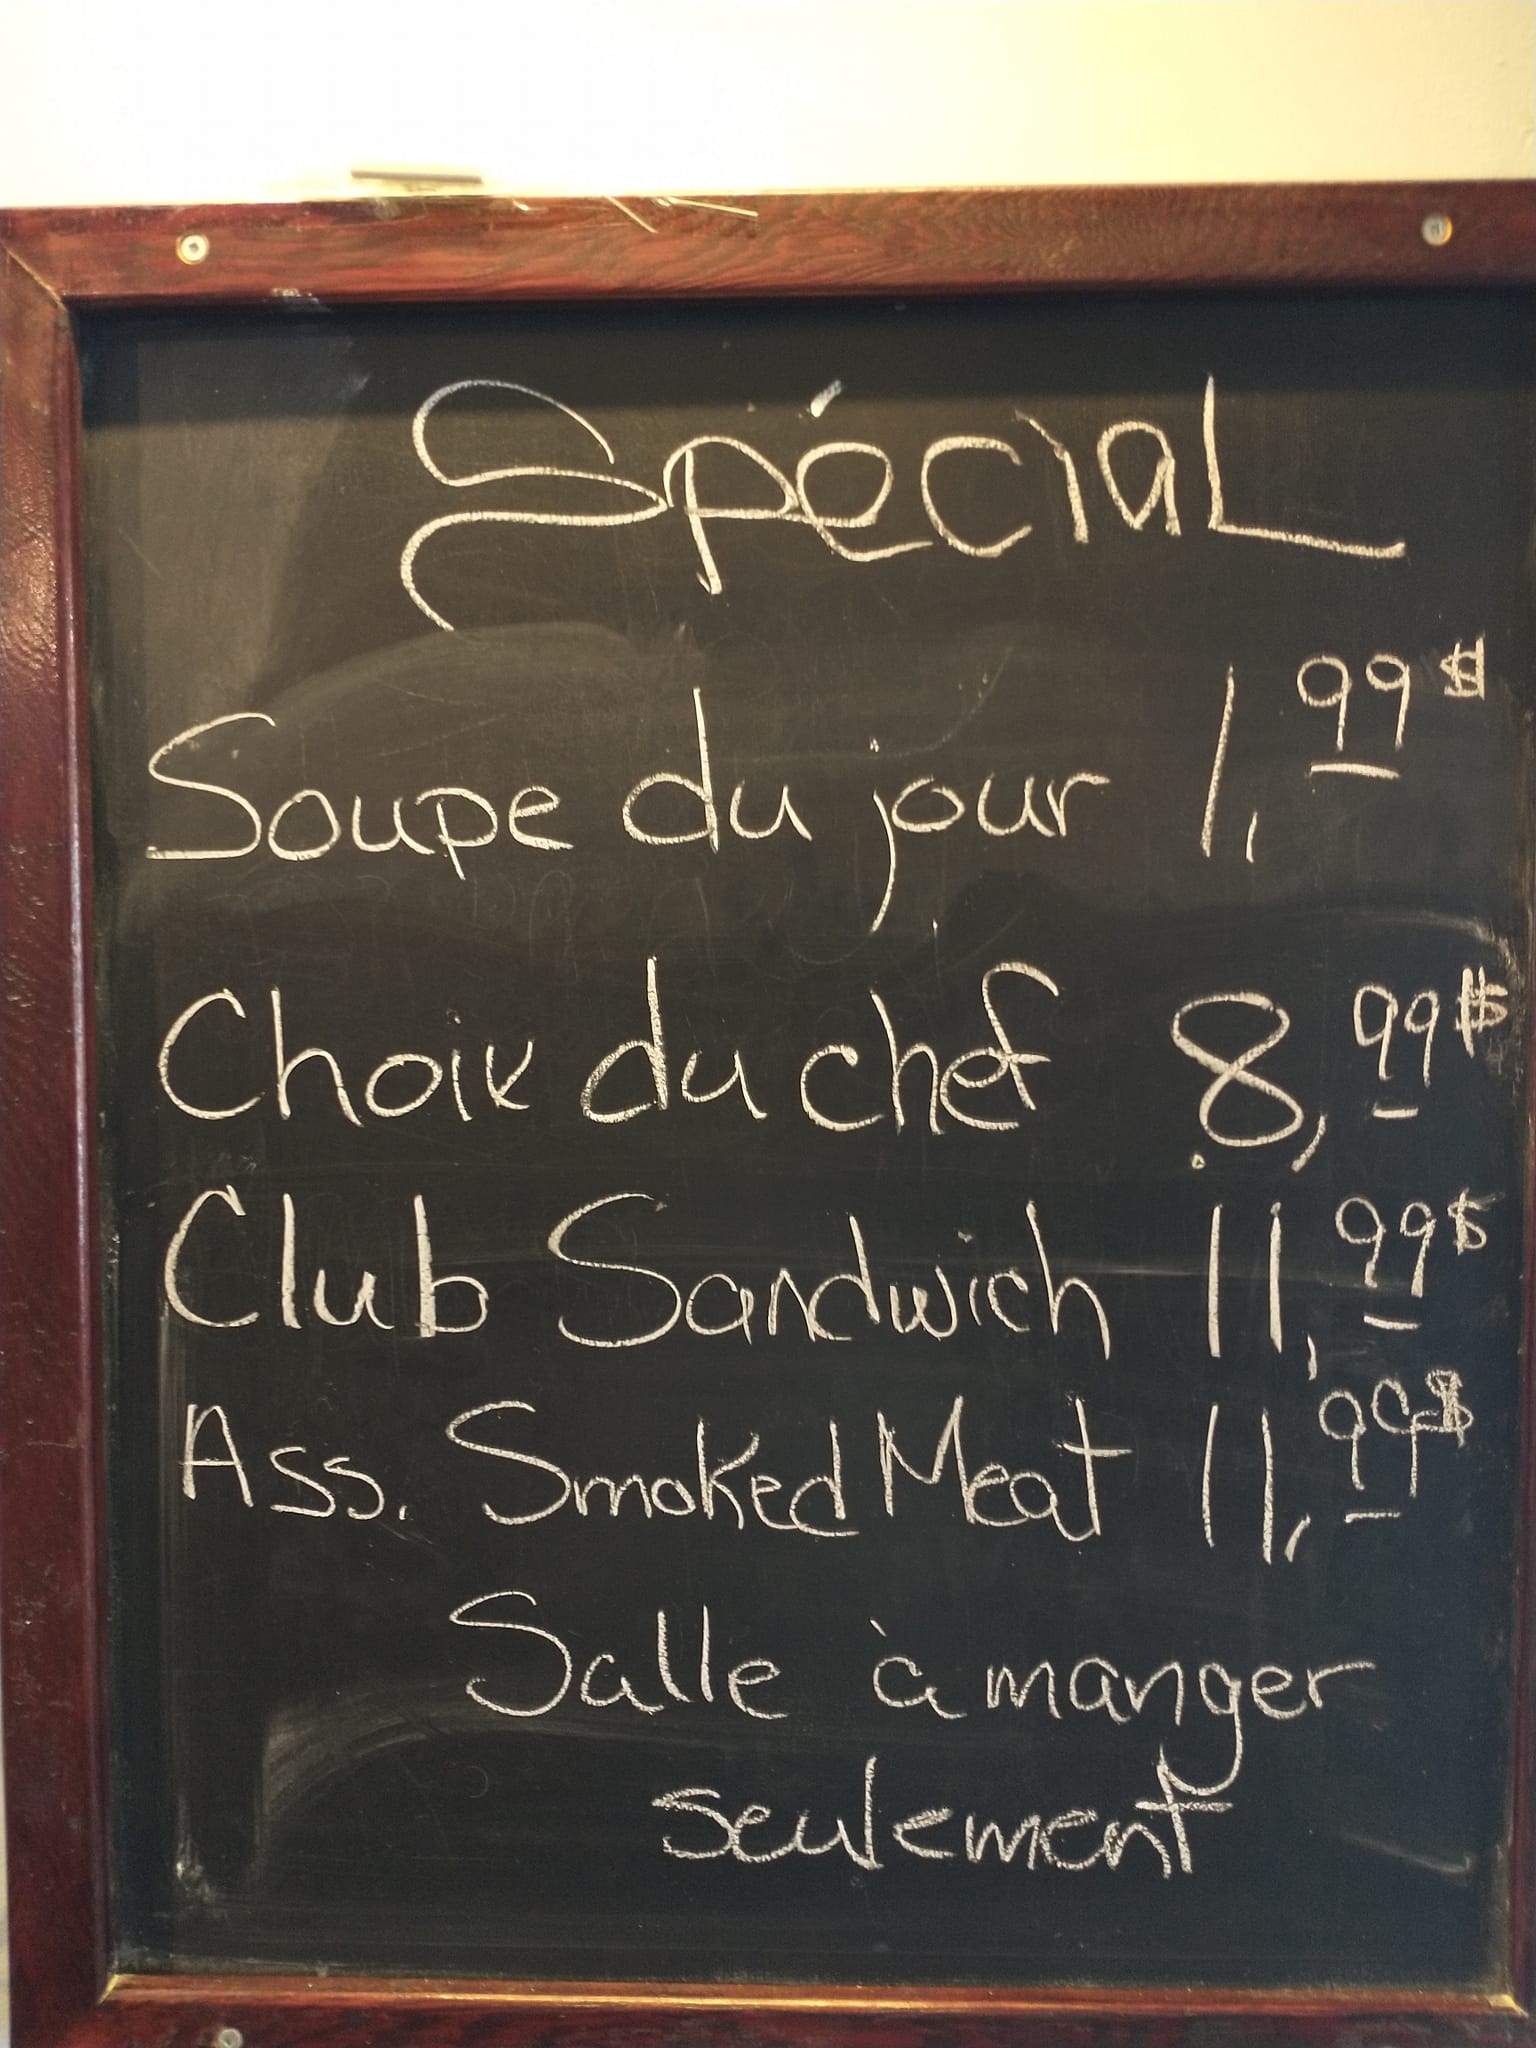 Spécial
Soupe du jour 1,99$
Choix du chef 8,99$
Club Sandwich 11,99$
Ass. Smoked Meat 11,99$
Salle à manger
seulement